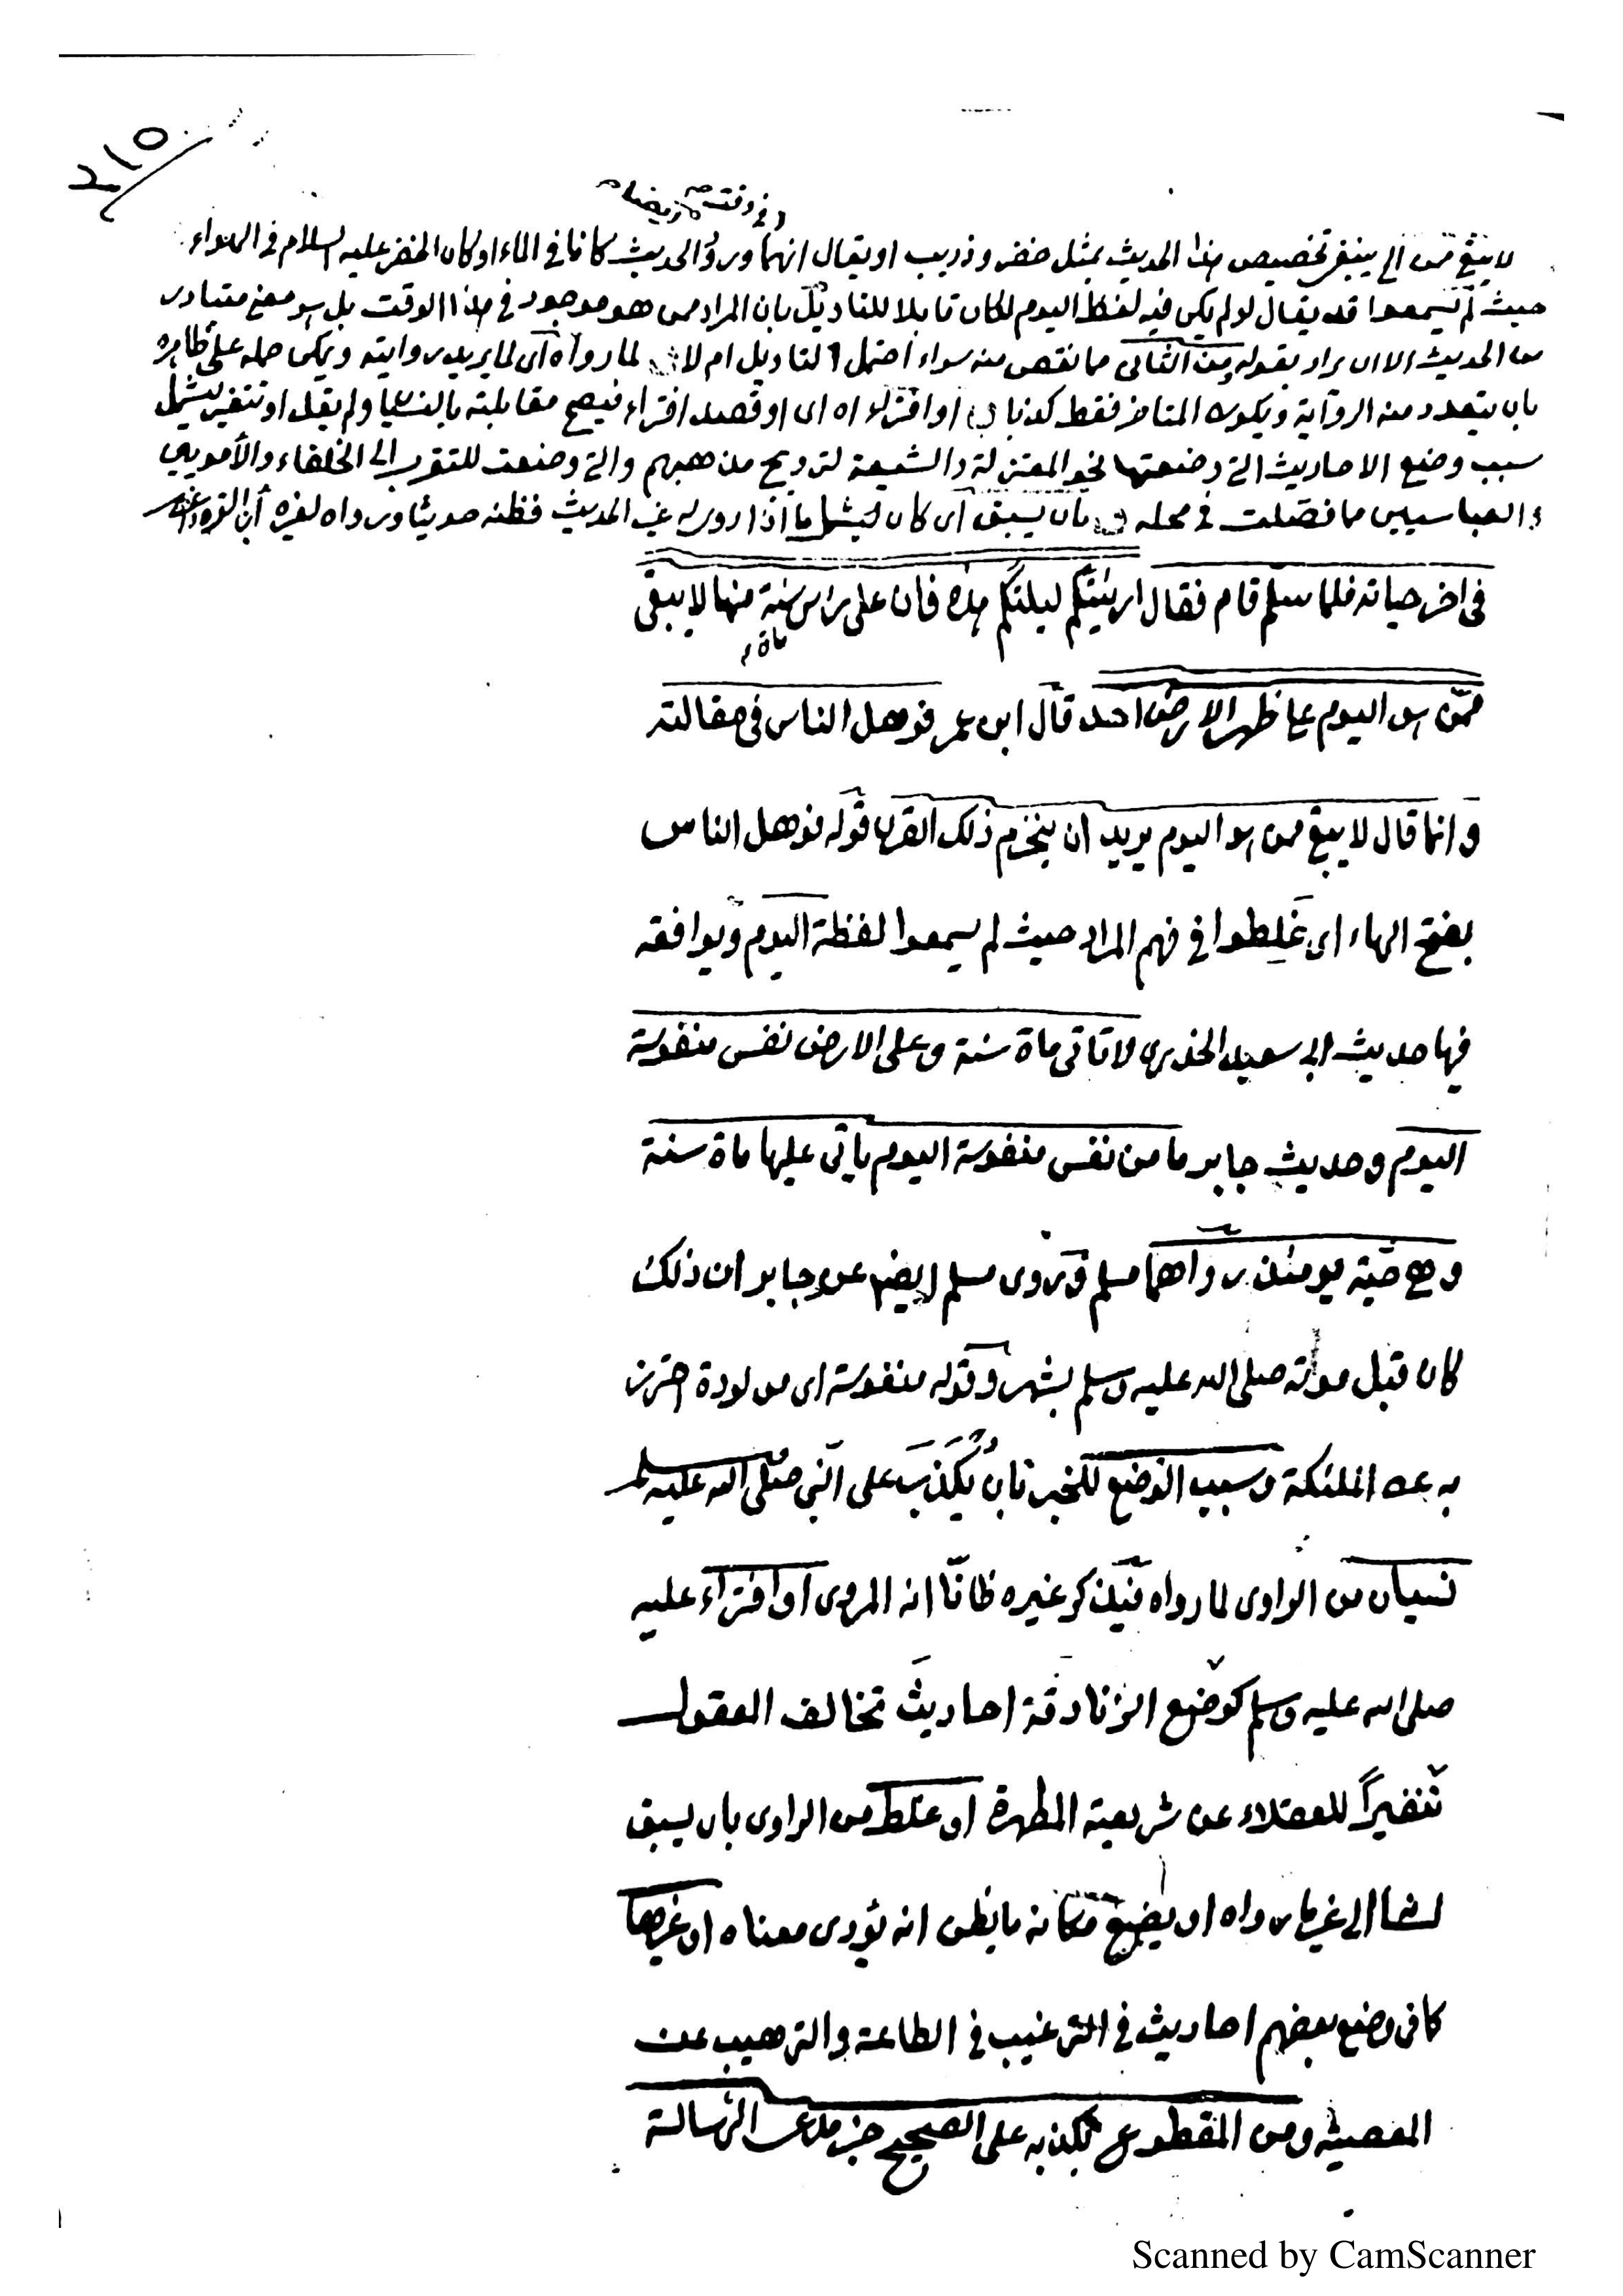 ٢١٥
لا يبقى ممن الى ينبغى تخصيص هذا الحديث بمثل خضر و ذريب او يقال انهما ورود الحديث كانا فى الماء او كان الخضر عليه السلام فى الهواء
حيث لم يسمعوا قد يقال لو لم يكن فيه لفظ اليوم لكان قابلا للتاويل بان المراد من هو موجود فى هذا الوقت بل هو معنى متبادر
من الحديث الا ان يراد بقوله ومن الثانى ما نقص منه سواء احتمل التاويل ام لا لما رواه اى لما يريد روايته ويمكن حمله على ظاهره
بان يتعدد منه الرواية ويكون المتاخر فقط كذبا او افتراء اه اى او قصد افتراء فيصح مقابلته بالنسيا ولم يقل او تنفير ليشمل
سبب وضع الاحاديث التى وضعتها نحو المعتزلة والشيعة لترويج مذهبهم والتى وضعت للتقرب الى الخلفاء والأمويين
والعباسيين مما فصلت فى محله بان يسبق اى كان ليشمل ما اذا روى غير الحديث فظنه حديثا ورواه لغيره
فى اخر حياته فلما سلم قام فقال ارئيتكم ليلتكم هذه فان على راس سنة منها لا يبقى
مأة
ممن هو اليوم على ظهر الارض احد قال ابن عمر فوهل الناس فى مقالته
وانما قال لا يبقى ممن هو اليوم يريد ان ينخرم ذلك القرن قوله فوهل الناس
بفتح الهاء اى غلطوا فى فهم المراد حيث لم يسمعوا لفظة اليوم ويوافقه
فيها حديث ابى سعيد الخدرى لا تاتى ماة سنة وعلى الارض نفس منفوسة
اليوم وحديث جابر ما من نفس منفوسة اليوم ياتى عليها ماة سنة
وهى حية يومئذ رواهما مسلم وروى مسلم ايضا عن جابر ان ذلك
كان قبل موته صلى الله عليه وسلم بشهر وقوله منفوسة اى مولودة احترز
به عن الملئكة وسبب الوضع للخبر بان يكذب على النبى صلى الله عليه وسلم
نسيان من الراوى لما رواه فيذكر غيره ظانا انه المروى او افتراء عليه
صلى الله عليه وسلم كوضع الزنادقة احاديث تخالف العقول
تنفيرا للعقلاء عن شريعته المطهرة او غلط من الراوى بان يسبق
لسانه الى غير ما رواه او يضع مكانه ما يظن انه يؤدى معناه او غيرها
كما فى وضع بعضهم احاديث فى الترغيب فى الطاعة والترهيب عن
المعصية ومن المقطوع بكذبه على الصحيح خبر مدعى الرسالة
Scanned by CamScanner